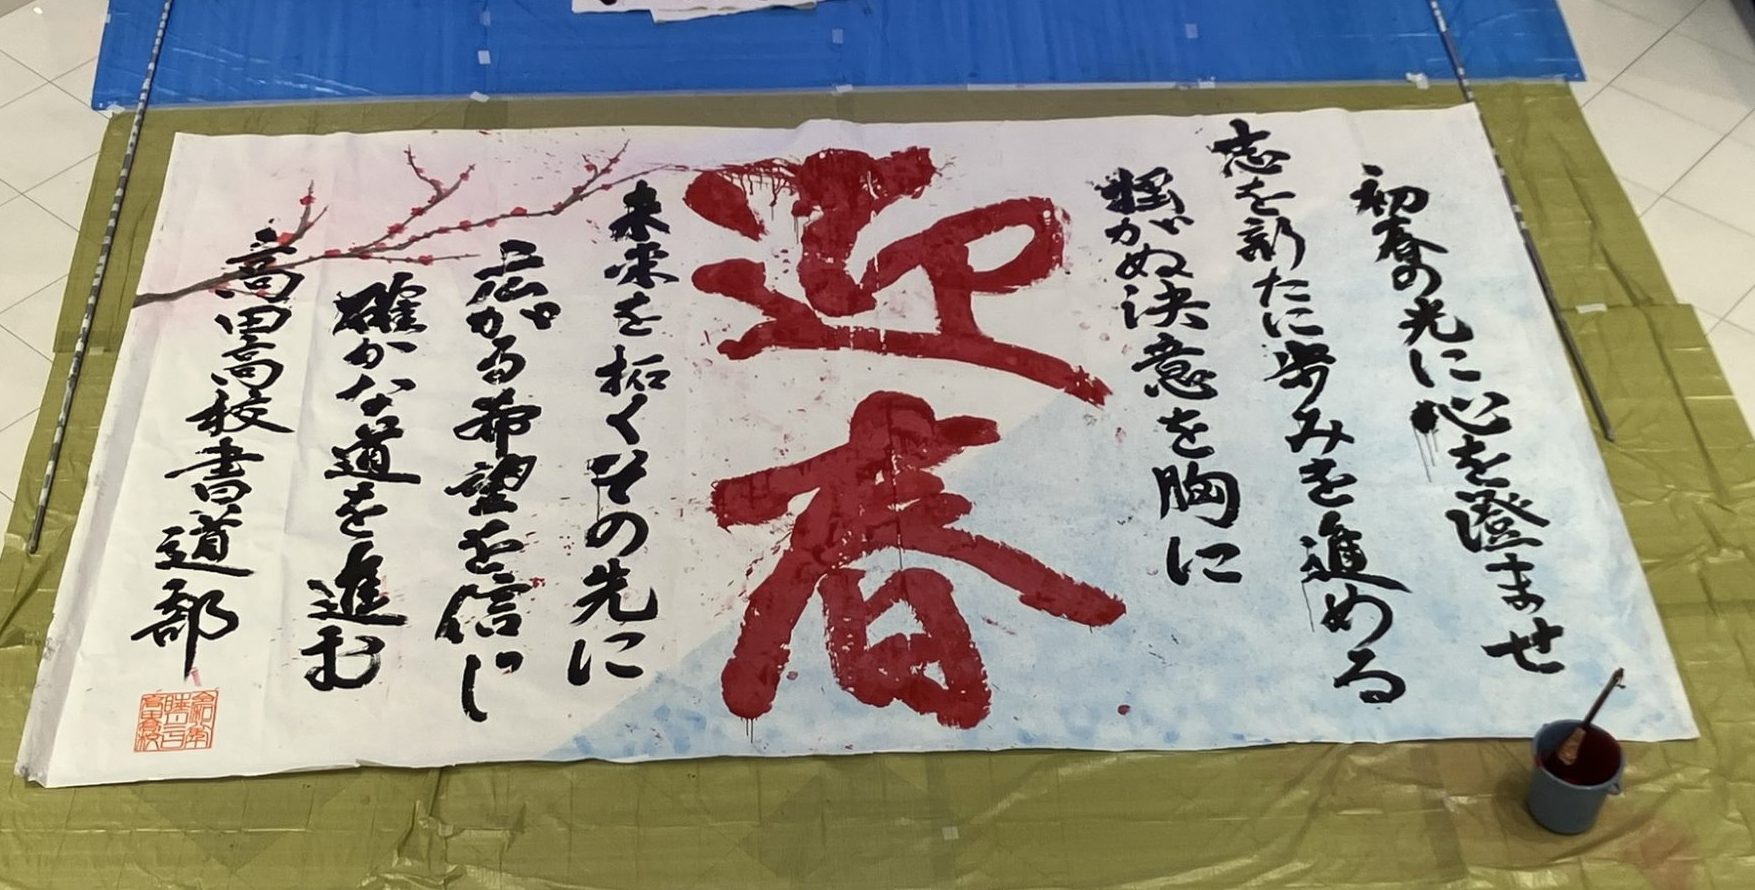 初春の光に心を澄ませ
志を新たに歩みを進める
揺がぬ決意を胸に
迎春
未来を拓くその先に
広がる希望を信じ
確かな道を進む
高田高校書道部